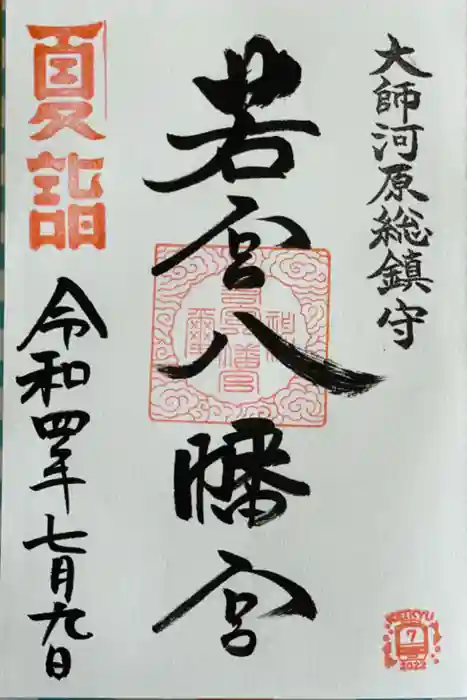 大師河原総鎮守
若宮八幡宮
夏詣
令和四年七月九日
KEIKYU
7
2022